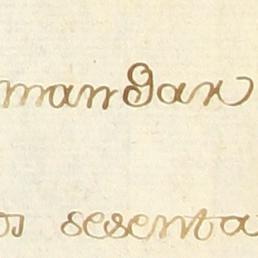 mandar
os sesenta